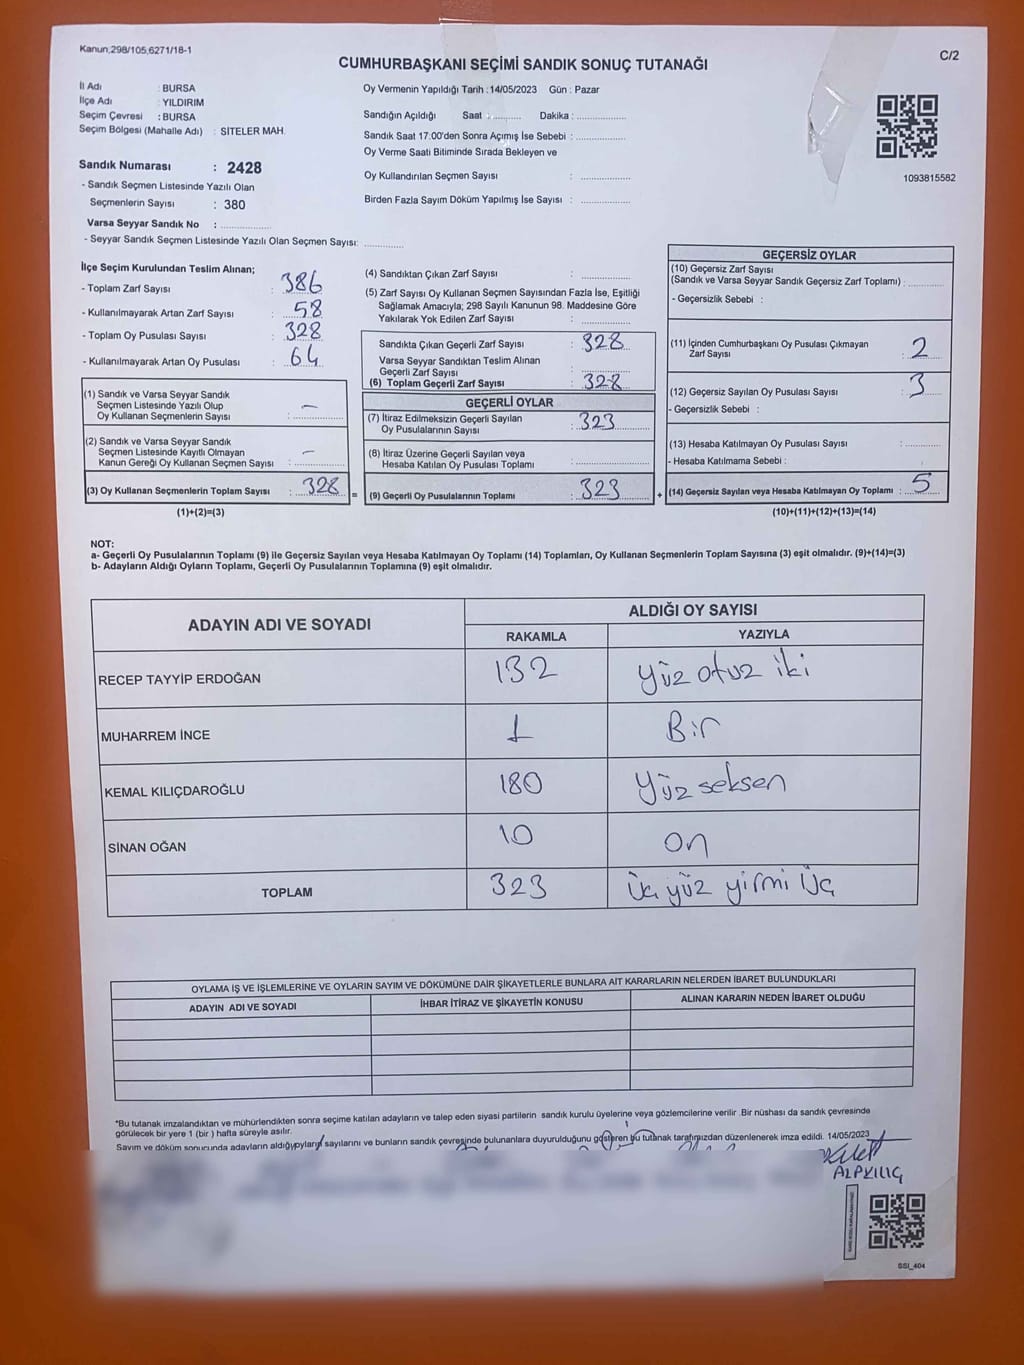 Kanun;298/105,6271/18-1
C/2
CUMHURBAŞKANI SEÇİMİ SANDIK SONUÇ TUTANAĞI
İl Adı : BURSA
İlçe Adı : YILDIRIM
Seçim Çevresi : BURSA
Seçim Bölgesi (Mahalle Adı) : SİTELER MAH.
Sandık Numarası : 2428
- Sandık Seçmen Listesinde Yazılı Olan
Seçmenlerin Sayısı : 380
Varsa Seyyar Sandık No : ...............
- Seyyar Sandık Seçmen Listesinde Yazılı Olan Seçmen Sayısı: ............
Oy Vermenin Yapıldığı Tarih : 14/05/2023 Gün : Pazar
Sandığın Açıldığı Saat : ........... Dakika : ................
Sandık Saat 17:00'den Sonra Açımış İse Sebebi : ................
Oy Verme Saati Bitiminde Sırada Bekleyen ve
Oy Kullandırılan Seçmen Sayısı : ................
Birden Fazla Sayım Döküm Yapılmış İse Sayısı : ................
1093815582
İlçe Seçim Kurulundan Teslim Alınan;
- Toplam Zarf Sayısı : 386
- Kullanılmayarak Artan Zarf Sayısı : 58
- Toplam Oy Pusulası Sayısı : 328
- Kullanılmayarak Artan Oy Pusulası : 64
(1) Sandık ve Varsa Seyyar Sandık
Seçmen Listesinde Yazılı Olup
Oy Kullanan Seçmenlerin Sayısı : –
(2) Sandık ve Varsa Seyyar Sandık
Seçmen Listesinde Kayıtlı Olmayan
Kanun Gereği Oy Kullanan Seçmen Sayısı : –
(3) Oy Kullanan Seçmenlerin Toplam Sayısı : 328
=
(1)+(2)=(3)
(4) Sandıktan Çıkan Zarf Sayısı : ................
(5) Zarf Sayısı Oy Kullanan Seçmen Sayısından Fazla İse, Eşitliği
Sağlamak Amacıyla; 298 Sayılı Kanunun 98. Maddesine Göre
Yakılarak Yok Edilen Zarf Sayısı : ................
Sandıkta Çıkan Geçerli Zarf Sayısı : 328
Varsa Seyyar Sandıktan Teslim Alınan
Geçerli Zarf Sayısı : ................
(6) Toplam Geçerli Zarf Sayısı : 328
GEÇERLİ OYLAR
(7) İtiraz Edilmeksizin Geçerli Sayılan
Oy Pusulalarının Sayısı : 323
(8) İtiraz Üzerine Geçerli Sayılan veya
Hesaba Katılan Oy Pusulası Toplamı : ................
(9) Geçerli Oy Pusulalarının Toplamı : 323
+
GEÇERSİZ OYLAR
(10) Geçersiz Zarf Sayısı
(Sandık ve Varsa Seyyar Sandık Geçersiz Zarf Toplamı) : ............
- Geçersizlik Sebebi :
(11) İçinden Cumhurbaşkanı Oy Pusulası Çıkmayan
Zarf Sayısı : 2
(12) Geçersiz Sayılan Oy Pusulası Sayısı : 3
- Geçersizlik Sebebi :
(13) Hesaba Katılmayan Oy Pusulası Sayısı : ............
- Hesaba Katılmama Sebebi :
(14) Geçersiz Sayılan veya Hesaba Katılmayan Oy Toplamı : 5
(10)+(11)+(12)+(13)=(14)
NOT:
a- Geçerli Oy Pusulalarının Toplamı (9) ile Geçersiz Sayılan veya Hesaba Katılmayan Oy Toplamı (14) Toplamları, Oy Kullanan Seçmenlerin Toplam Sayısına (3) eşit olmalıdır. (9)+(14)=(3)
b- Adayların Aldığı Oyların Toplamı, Geçerli Oy Pusulalarının Toplamına (9) eşit olmalıdır.
ADAYIN ADI VE SOYADI
ALDIĞI OY SAYISI
RAKAMLA YAZIYLA
RECEP TAYYİP ERDOĞAN 132 yüz otuz iki
MUHARREM İNCE 1 Bir
KEMAL KILIÇDAROĞLU 180 Yüz seksen
SİNAN OĞAN 10 on
TOPLAM 323 üç yüz yirmi üç
OYLAMA İŞ VE İŞLEMLERİNE VE OYLARIN SAYIM VE DÖKÜMÜNE DAİR ŞİKAYETLERLE BUNLARA AİT KARARLARIN NELERDEN İBARET BULUNDUKLARI
ADAYIN ADI VE SOYADI İHBAR İTİRAZ VE ŞİKAYETİN KONUSU ALINAN KARARIN NEDEN İBARET OLDUĞU
*Bu tutanak imzalandıktan ve mühürlendikten sonra seçime katılan adayların ve talep eden siyasi partilerin sandık kurulu üyelerine veya gözlemcilerine verilir .Bir nüshası da sandık çevresinde
görülecek bir yere 1 (bir ) hafta süreyle asılır.
Sayım ve döküm sonucunda adayların aldığı sayılarını ve bunların sandık çevresinde bulunanlara duyurulduğunu gösteren bu tutanak tarafımızdan düzenlenerek imza edildi. 14/05/2023
ALPKILIÇ
SSI_404